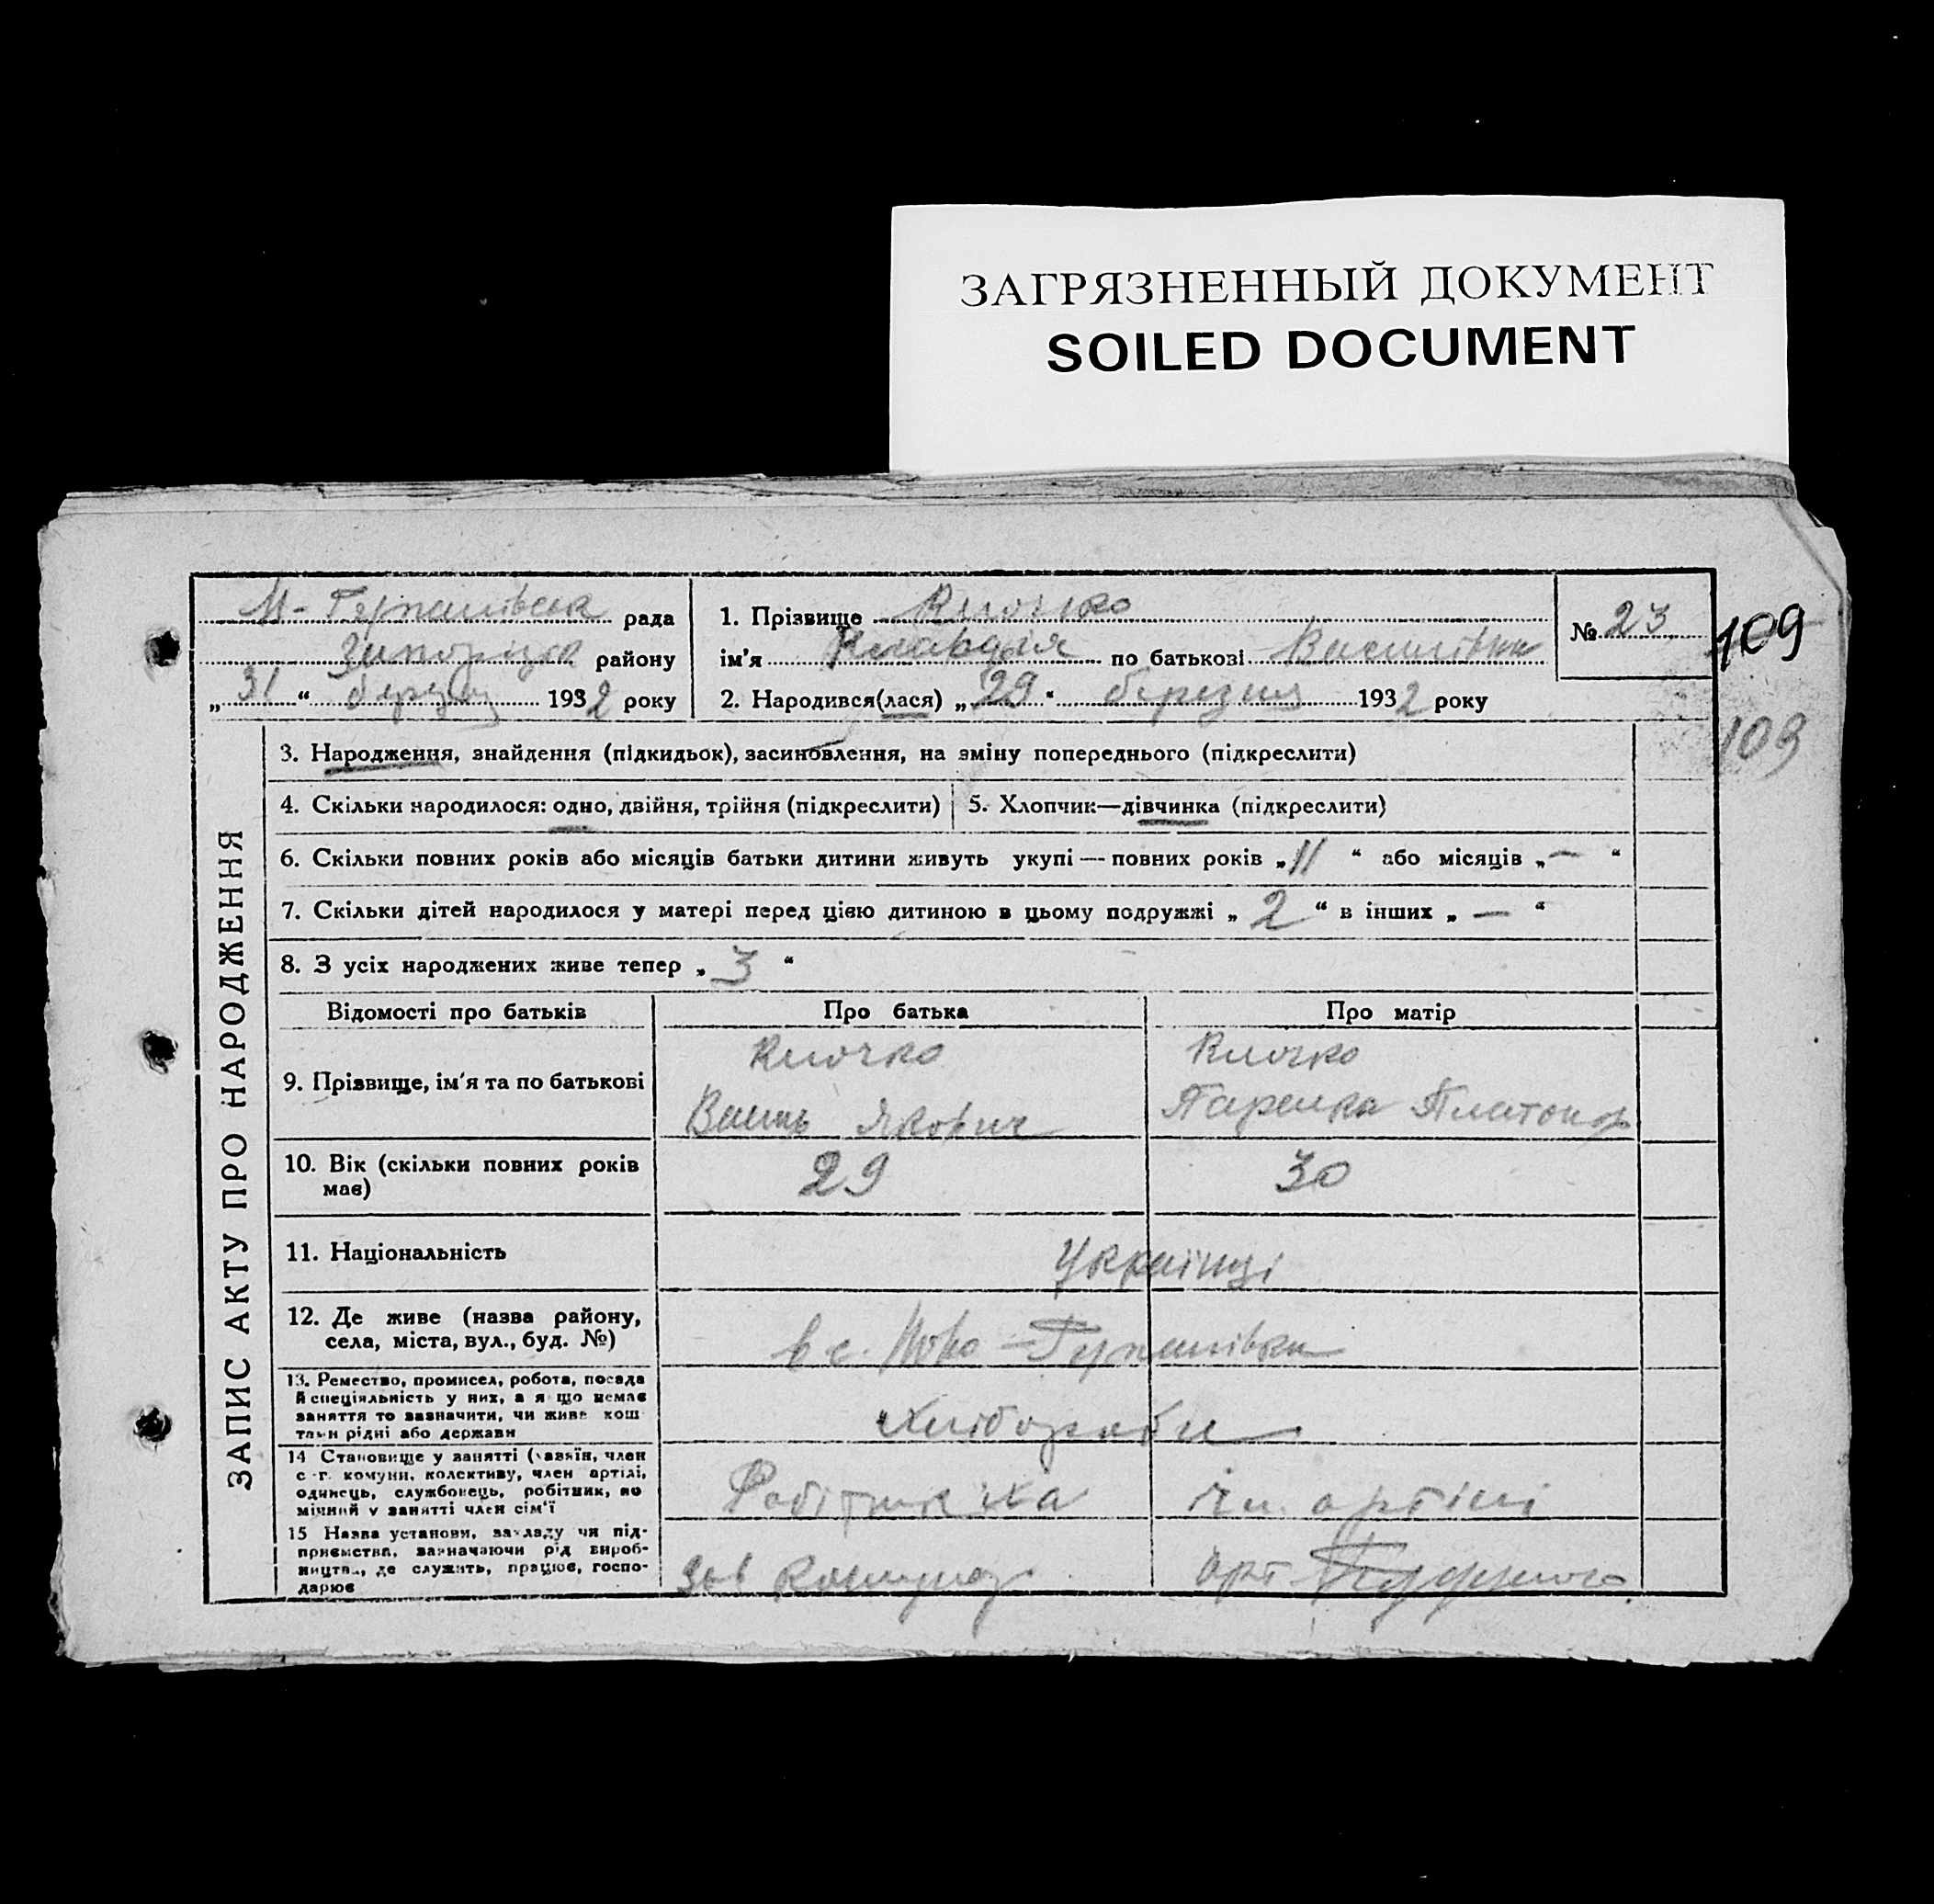 ЗАГРЯЗНЕННЫЙ ДОКУМЕНТ
SOILED DOCUMENT
рада
району
„31“ березня 1932 року
1. Прізвище Клочко
ім’я Клавдія по батькові Василівна
2. Народився(лася) „29“ березня 1932 року
№ 23
109
109
ЗАПИС АКТУ ПРО НАРОДЖЕННЯ
3. Народження, знайдення (підкидьок), засиновлення, на зміну попереднього (підкреслити)
4. Скільки народилося: одно, двійня, трійня (підкреслити)
5. Хлопчик—дівчинка (підкреслити)
6. Скільки повних років або місяців батьки дитини живуть укупі — повних років „11“ або місяців „—“
7. Скільки дітей народилося у матері перед цією дитиною в цьому подружжі „2“ в інших „—“
8. З усіх народжених живе тепер „3“
Відомості про батьків
Про батька
Про матір
9. Прізвище, ім'я та по батькові
Клочко
Якович
Клочко
10. Вік (скільки повних років
має)
29
30
11. Національність
Українці
12. Де живе (назва району,
села, міста, вул., буд. №)
в с. Ново-
13. Ремество, промисел, робота, посада
й спеціяльність у них, а якщо немає
заняття то зазначити, чи живе кош
тами рідні або держави
Хлібороби
14 Становище у занятті (хазяїн, член
с.-г. комуни, колективу, член артілі,
одинець, службовець, робітник, по
мічний у занятті член сім'ї
чл. артілі
15 Назва установи, закладу чи під-
приємства, зазначаючи рід вироб-
ництва, де служить, працює, госпо-
дарює
арт